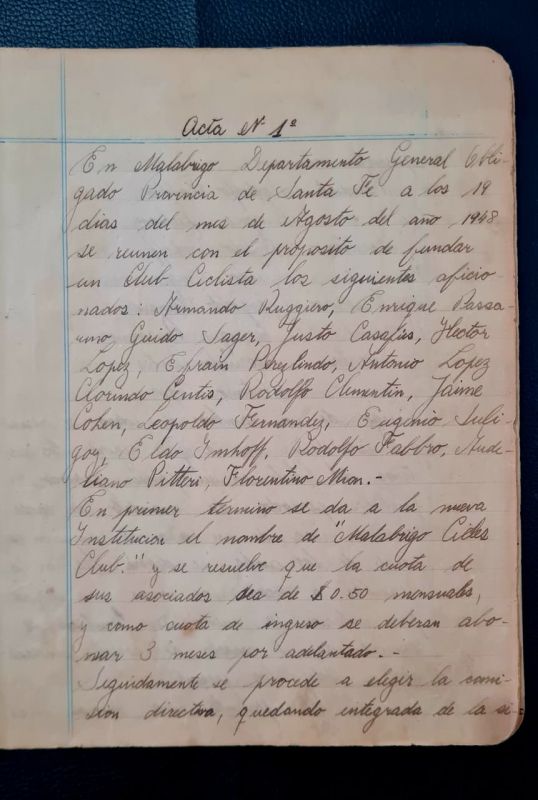 Acta Nº 1º
En Malabrigo Departamento General Obli-
gado Provincia de Santa Fe a los 19
dias del mes de Agosto del año 1948
se reunen con el proposito de fundar
un Club Ciclista los siguientes aficio-
nados: Armando Ruggiero, Enrique Passa-
rino, Guido Sager, Justo Casafús, Hector
Lopez, Efrain Perezlindo, Antonio Lopez
Clorindo Centis, Rodolfo Clementin, Jaime
Cohen, Leopoldo Fernandez, Eugenio Suli-
goy, Eldo Imhoff, Rodolfo Fabbro, Aude-
liano Pitteri, Florentino Mian.-
En primer termino se da a la nueva
Institucion el nombre de "Malabrigo Cicles
Club." y se resuelve que la cuota de
sus asociados sea de $ 0.50 mensuales,
y como cuota de ingreso se deberan abo-
nar 3 meses por adelantado.-
Seguidamente se procede a elegir la comi-
sion directiva, quedando integrada de la si-